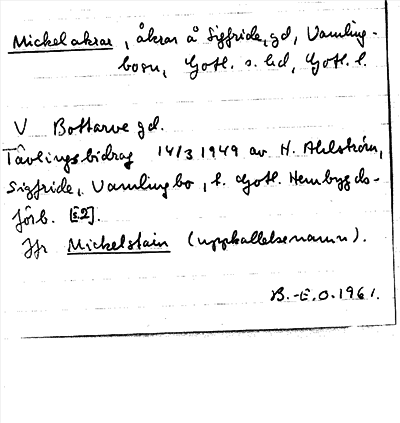 Mickelakrar, åkrar å Sigfride, gd, Vamling-
bosn, Gotl. s. hd, Gotl. l.
V Bottarve gd.
Tävlingsbidrag 14/3 1949 av H. Ahlström,
Sigfride, Vamlingbo, t. Gotl. Hembygds-
förb. [s.2].
Jfr Mickelstain (uppkallelsenamn).
B.-E.O. 1961.